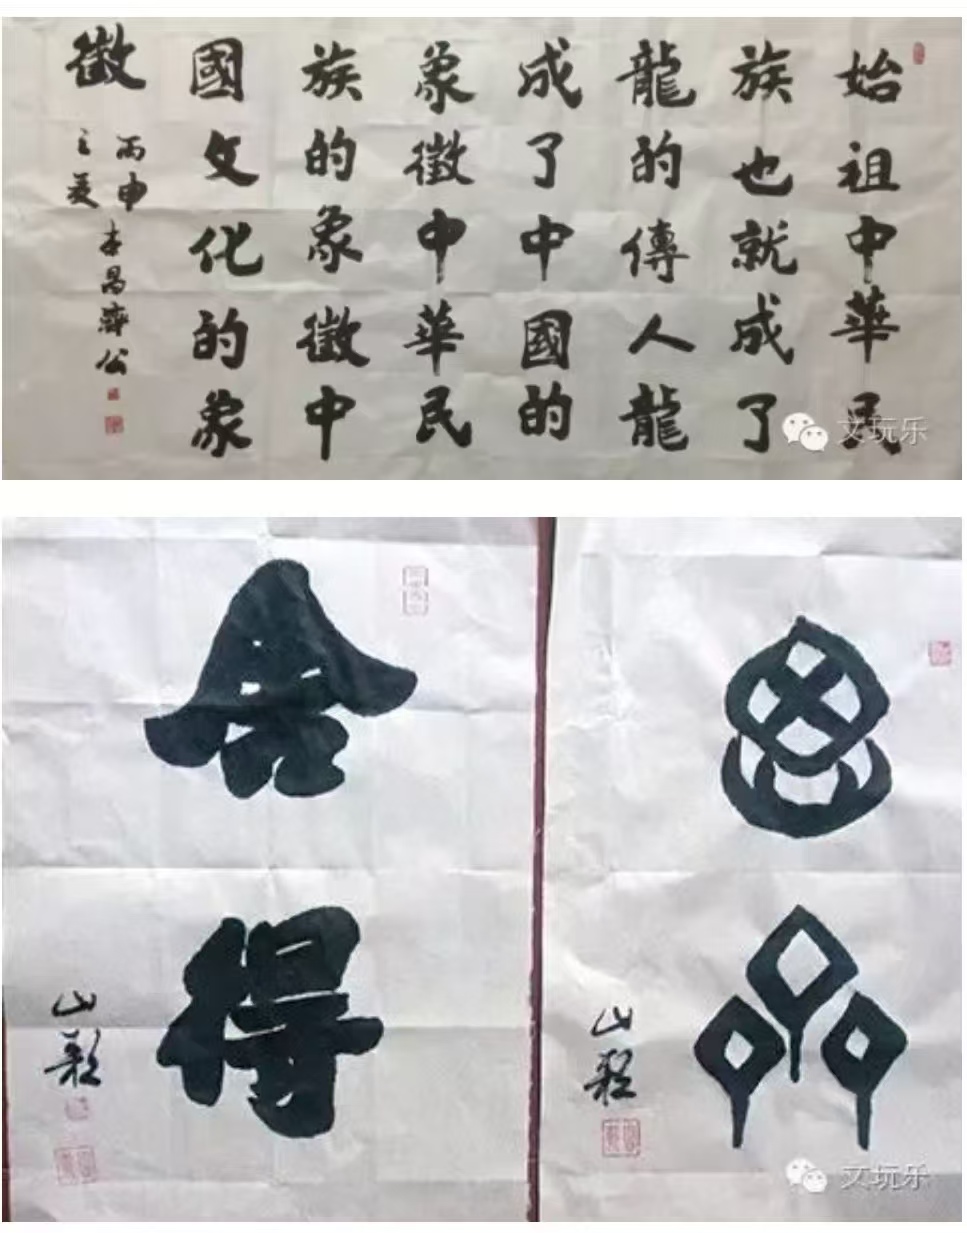 始祖中華民
族也就成了
龍的傳人龍
成了中國的
象徵中華民
族的象徵中
國文化的象
徵
丙申
之夏
昌濟公
文玩乐
舍得
山
品
山
文玩乐